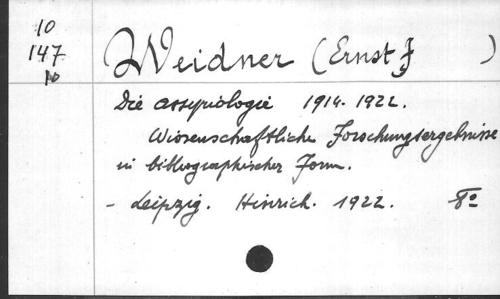 10
147
10
Weidner (Ernst F )
Die assyriologie 1914-1922.
Wissenschaftliche Forschungsergebnisse
in bibliographischer Form.
- Leipzig. Hinrich. 1922. 8º